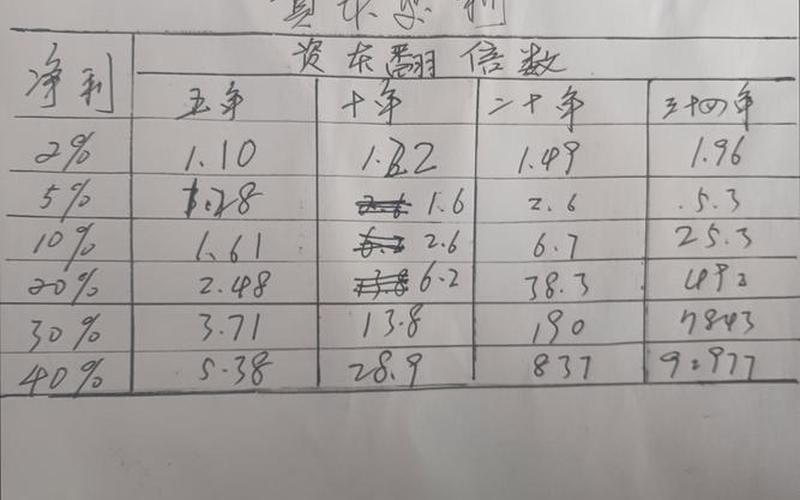 资本复利
资本翻倍数
净利 五年 十年 二十年 三十四年
2% 1.10 1.22 1.49 1.96
5% 1.28 1.6 2.6 5.3
10% 1.61 2.6 6.7 25.3
20% 2.48 6.2 38.3 492
30% 3.71 13.8 190 7843
40% 5.38 28.9 837 92977